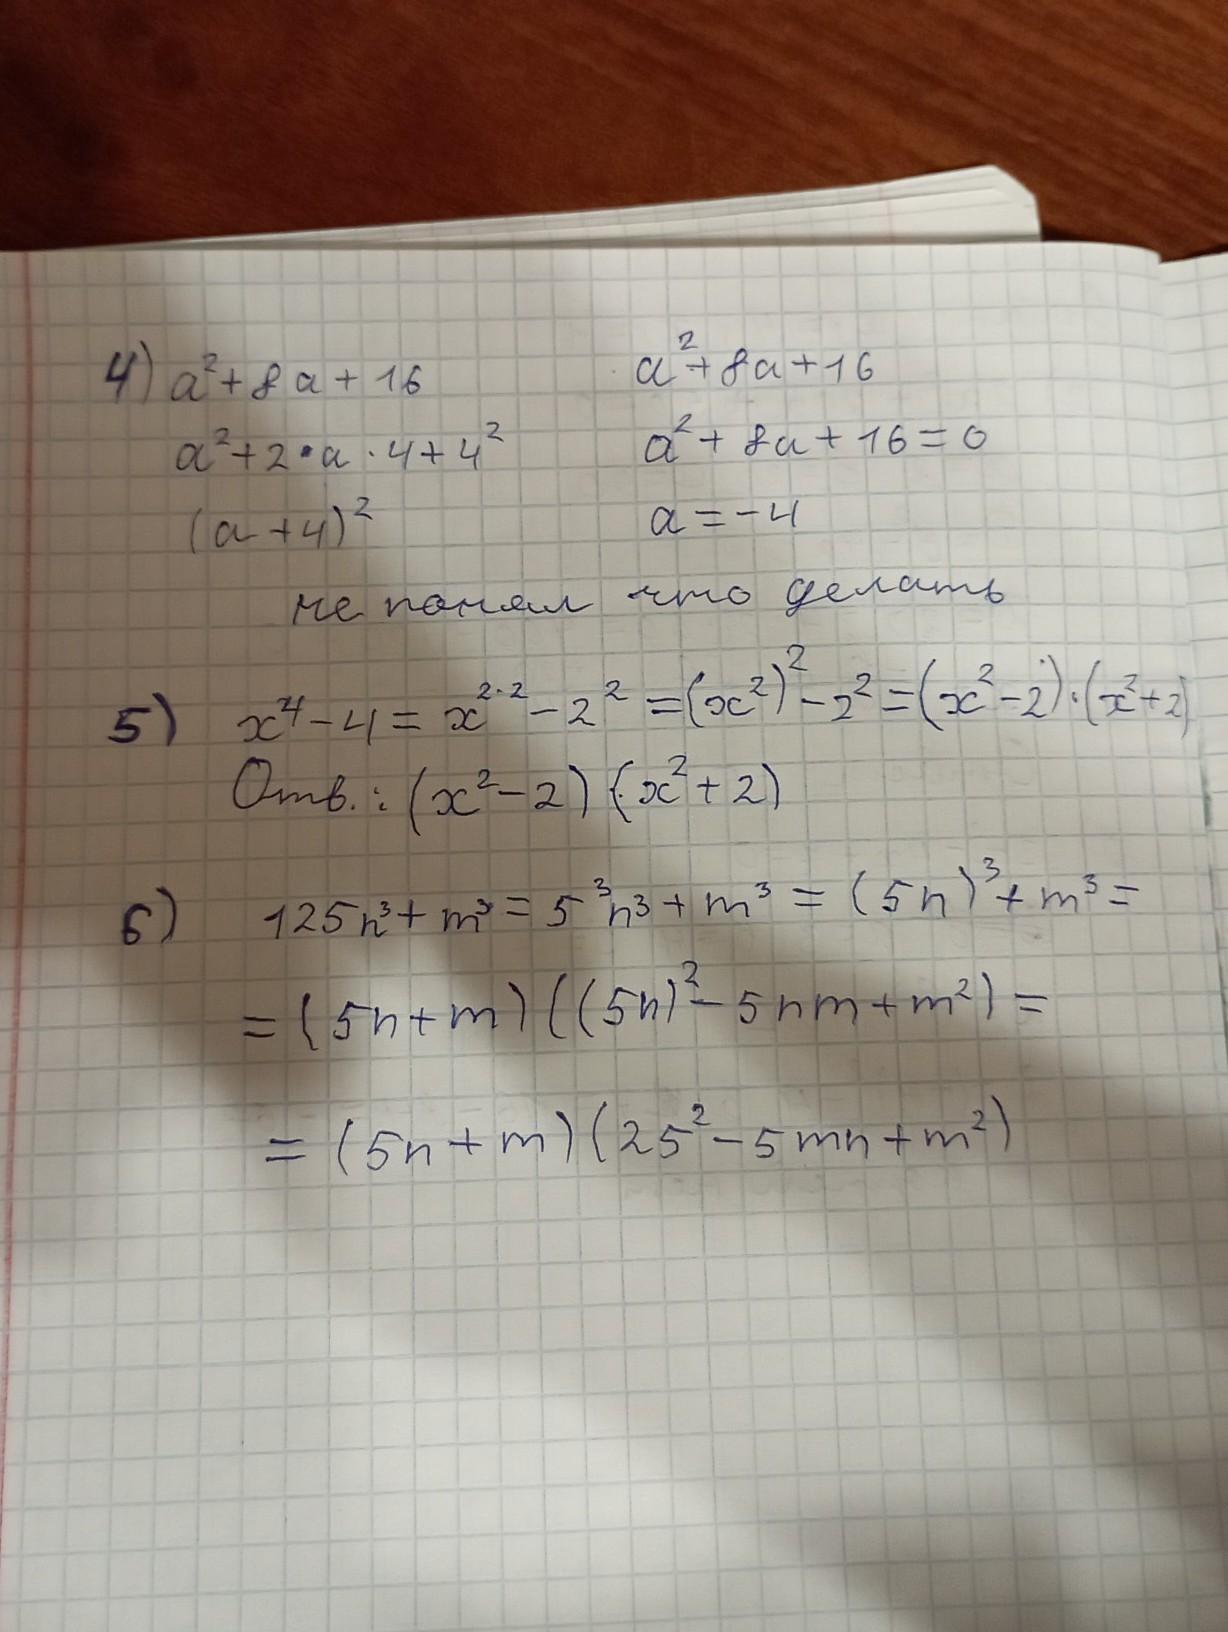 4) a²+8a+16
a²+2·a·4+4²
(a+4)²
a²+8a+16
a²+8a+16=0
a=-4
не понял что делать
5) x⁴-4=x²·²-2²=(x²)²-2²=(x²-2)·(x²+2)
Отв.: (x²-2)(x²+2)
6) 125n³+m³=5³n³+m³=(5n)³+m³=
=(5n+m)((5n)²-5nm+m²)=
=(5n+m)(25²-5mn+m²)